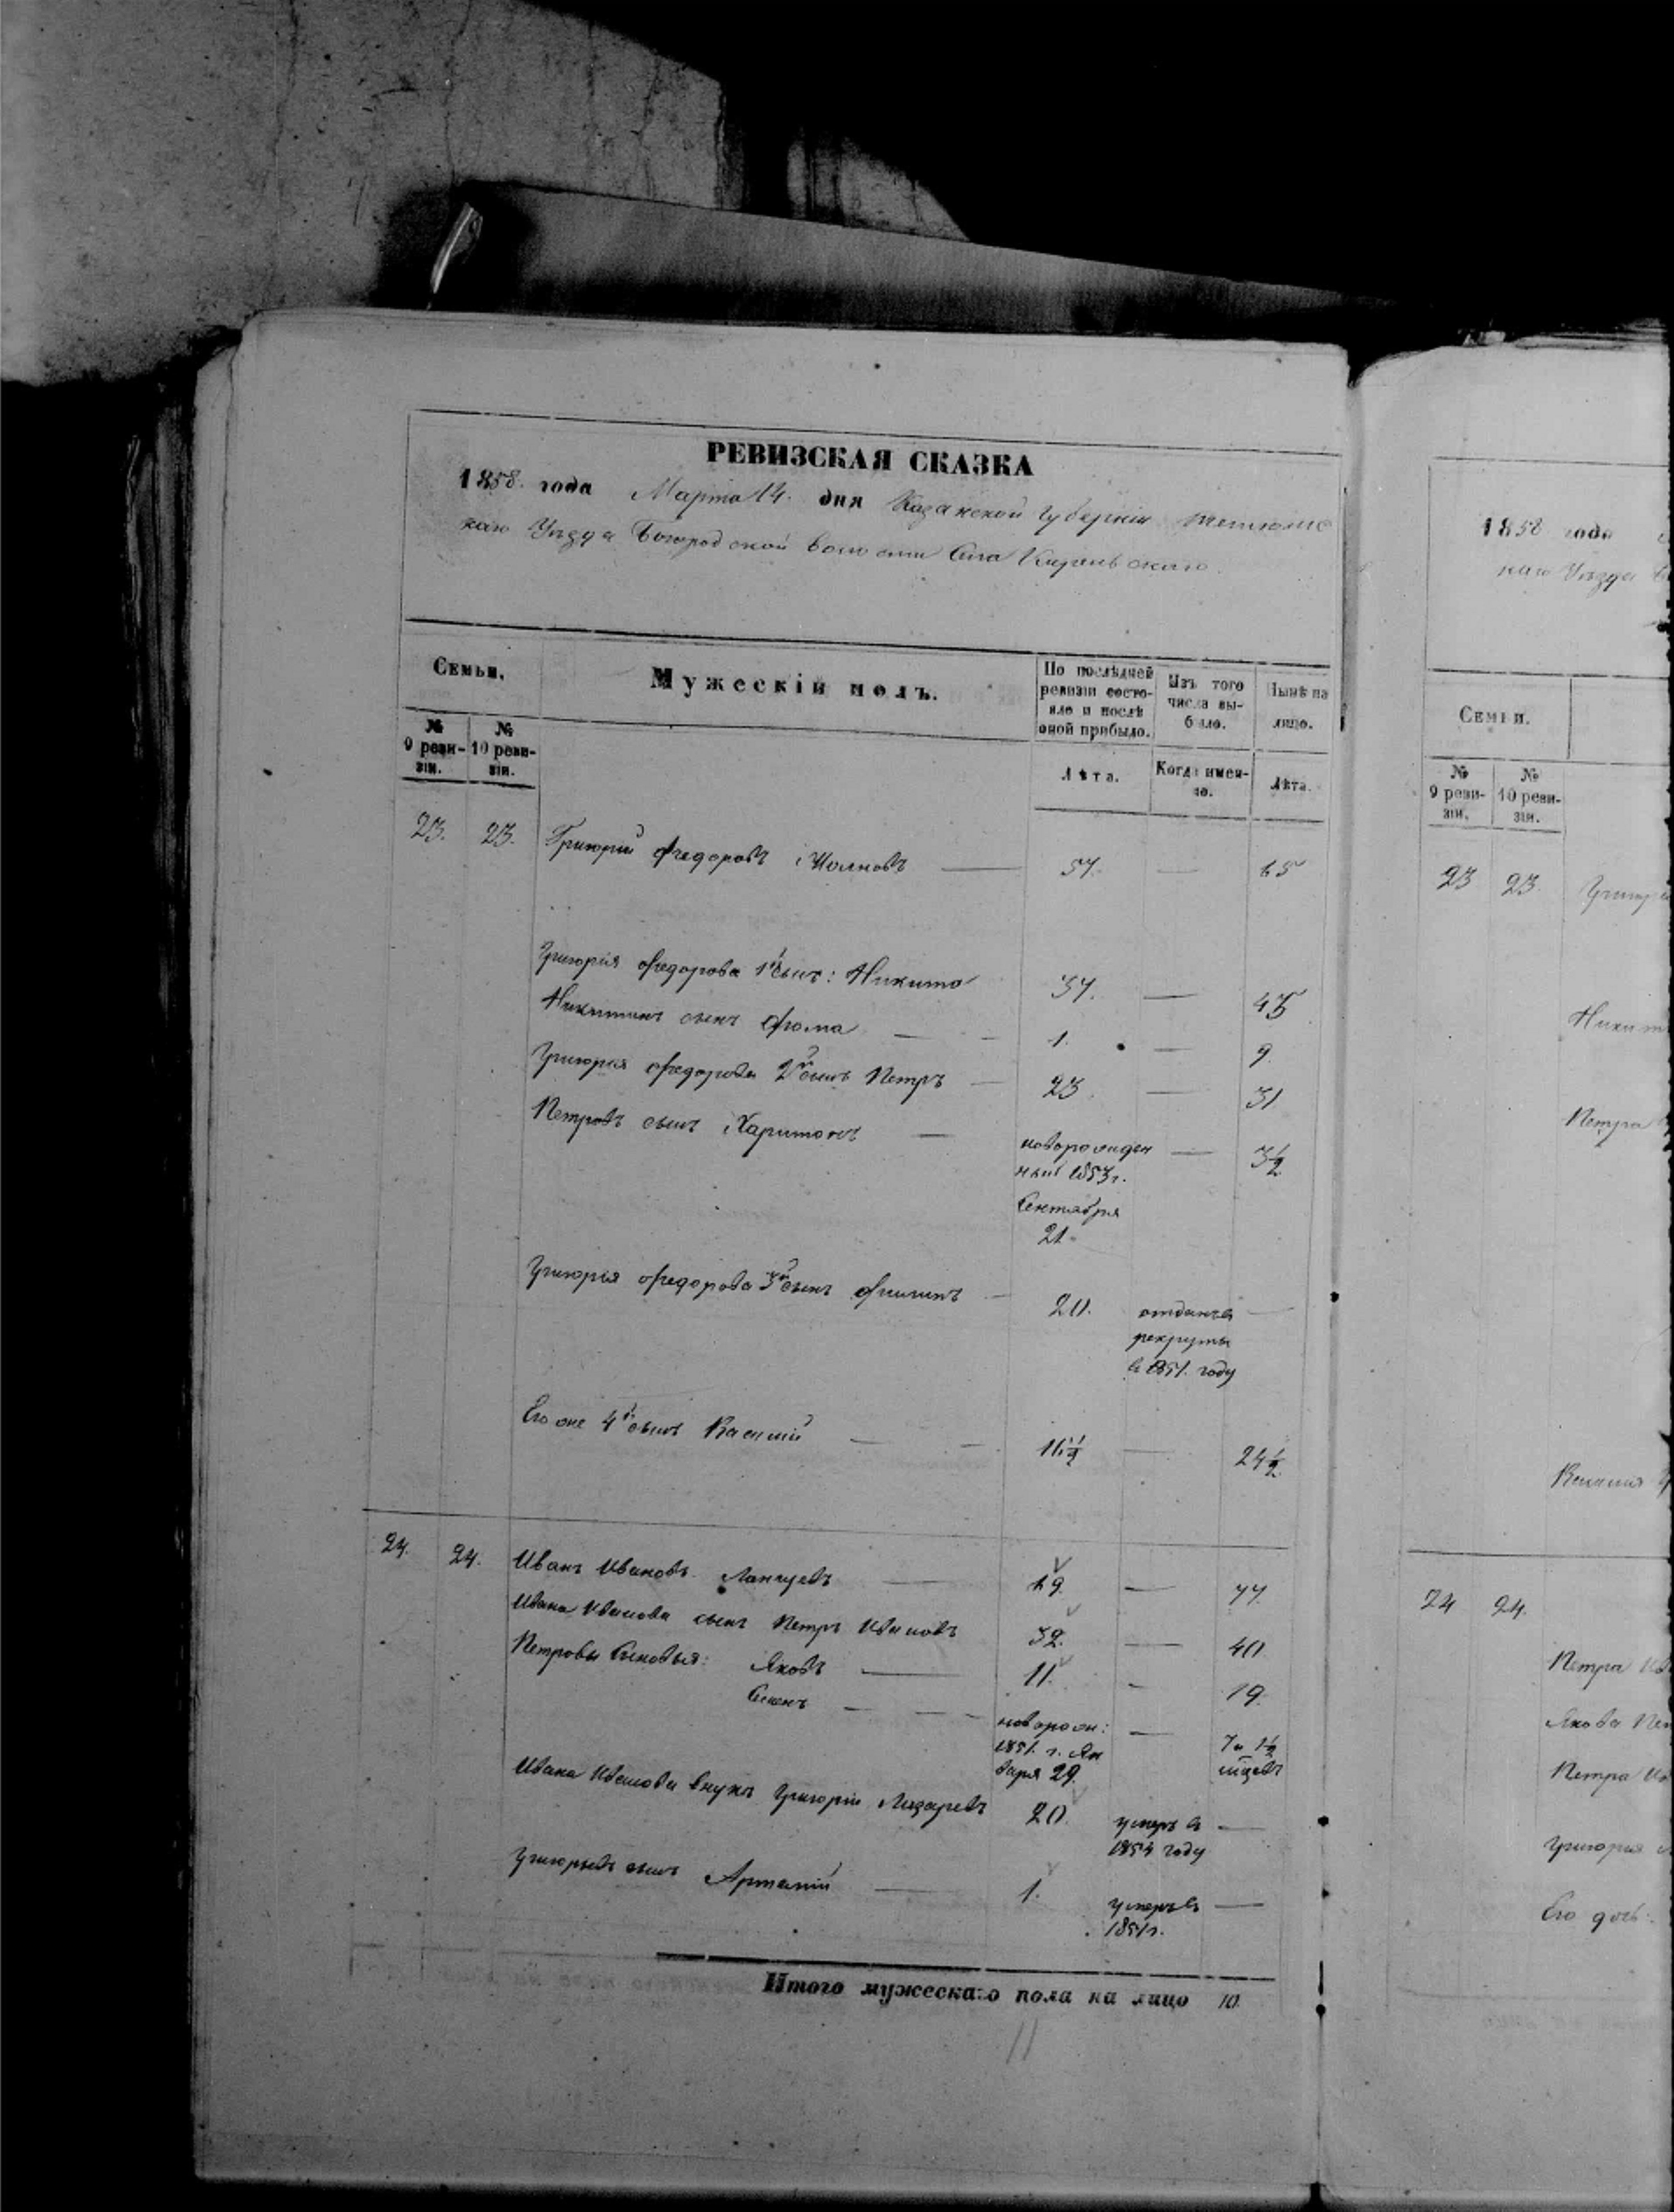 РЕВИЗСКАЯ СКАЗКА
1858. года Марта 14. дня Казанской Губерніи тетюшс
каго Уѣзда Богородской волости Села
Семьи.
Мужескій полъ.
По послѣдней ревизіи состо-
яло и послѣ
оной прибыло.
Изъ того
числа вы-
было.
Нынѣ на
лицо.
№
9 реви-
зіи.
№
10 реви-
зіи.
Лѣта.
Когда имен-
но.
Лѣта.
23. 23. Григорій Федоровъ — 57. — 65
Григорія Федорова 1й сынъ: Никита 37. — 45
Никитинъ сынъ Фома — — 1. — 9.
Григорія Федорова 2й сынъ Петръ — 23. — 31
Петровъ сынъ Харитонъ — новорожден
ный 1853 г.
Сентября
21.
— 3½
Григорія Федорова 3й сынъ Филипъ — 20. отданъ въ —
рекруты
в 1851. году
Его же 4й сынъ Василій — — 16½ — 24½
24. 24. Иванъ Ивановъ — 69. — 77.
Ивана Иванова сынъ Петръ Ивановъ 32. — 40.
Петровы Сыновья: Яковъ — 11. — 19.
Семенъ — — — новорож:
1851. г. Ян
варя 29.
— 7 и 1½
мѣсець
Ивана Иванова внукъ Григорій Лазаревъ 20. умеръ въ —
1854 году
Григорьевъ сынъ Артемій — 1. умеръ въ —
1851 г.
Итого мужескаго пола на лицо 10.
11
1858 года
каго Уѣзда
Семьи.
№
9 реви-
зіи.
№
10 реви-
зіи.
23 23.
Петра
24 24.
Петра
Якова
Петра
Григорія
Его дочь: